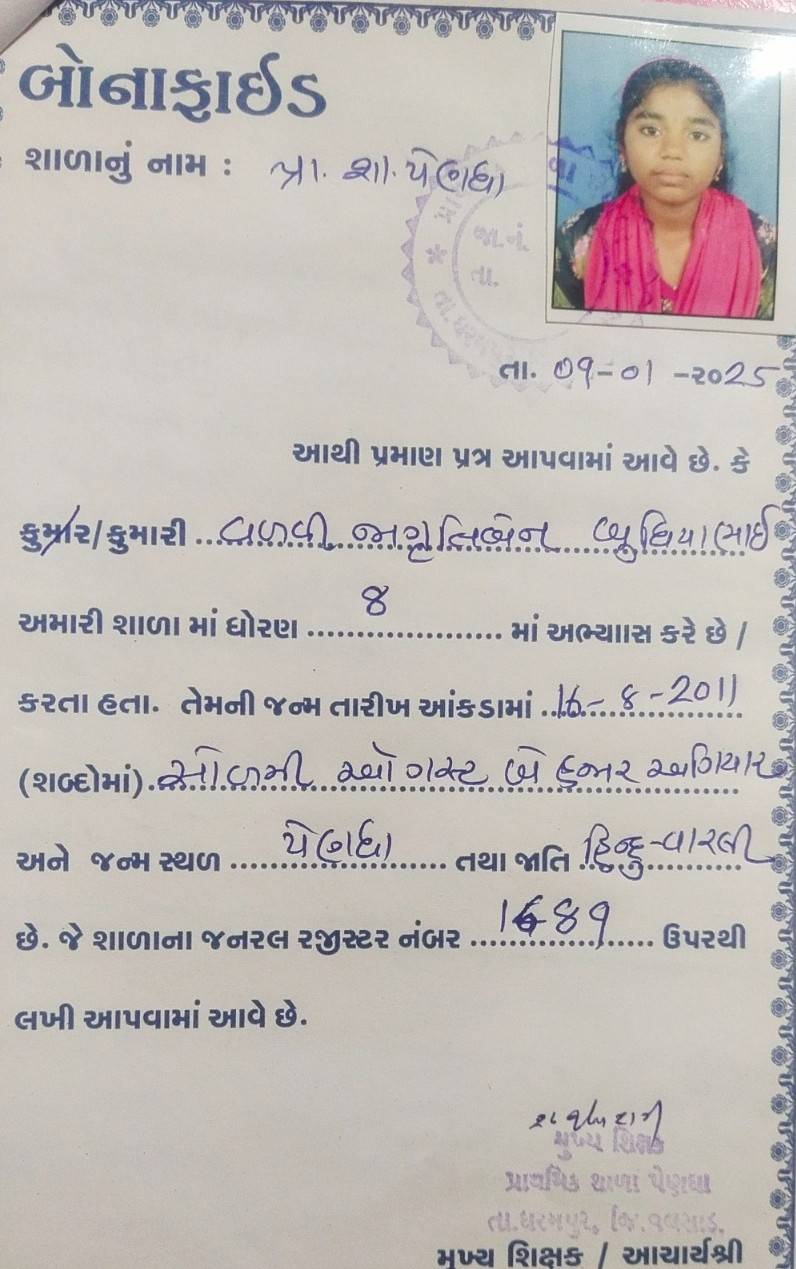 બોનાફાઈડ
શાળાનું નામ : પ્રા. શા. પેણધા
પ્રા
જા.નં.
તા.
તા. ધરમપુર
તા. ૦૧-૦૧ -૨૦૨5
આથી પ્રમાણ પત્ર આપવામાં આવે છે. કે
કુમાર/કુમારી .. વળવી જાગૃતિબેન બુધિયાભાઈ
અમારી શાળા માં ધોરણ ૪ માં અભ્યાસ કરે છે /
કરતા હતા. તેમની જન્મ તારીખ આંકડામાં .16 - ૪ - 2011
(શબ્દોમાં). સોળમી ઓગસ્ટ બે હજાર અગિયાર
અને જન્મ સ્થળ પેણધા તથા જાતિ હિન્દુ-વારલી
છે. જે શાળાના જનરલ રજીસ્ટર નંબર ઉપરથી
લખી આપવામાં આવે છે.
મુખ્ય શિક્ષક
પ્રાથમિક શાળા પેણધા
તા.ધરમપુર, જિ.વલસાડ.
મુખ્ય શિક્ષક / આચાર્યશ્રી